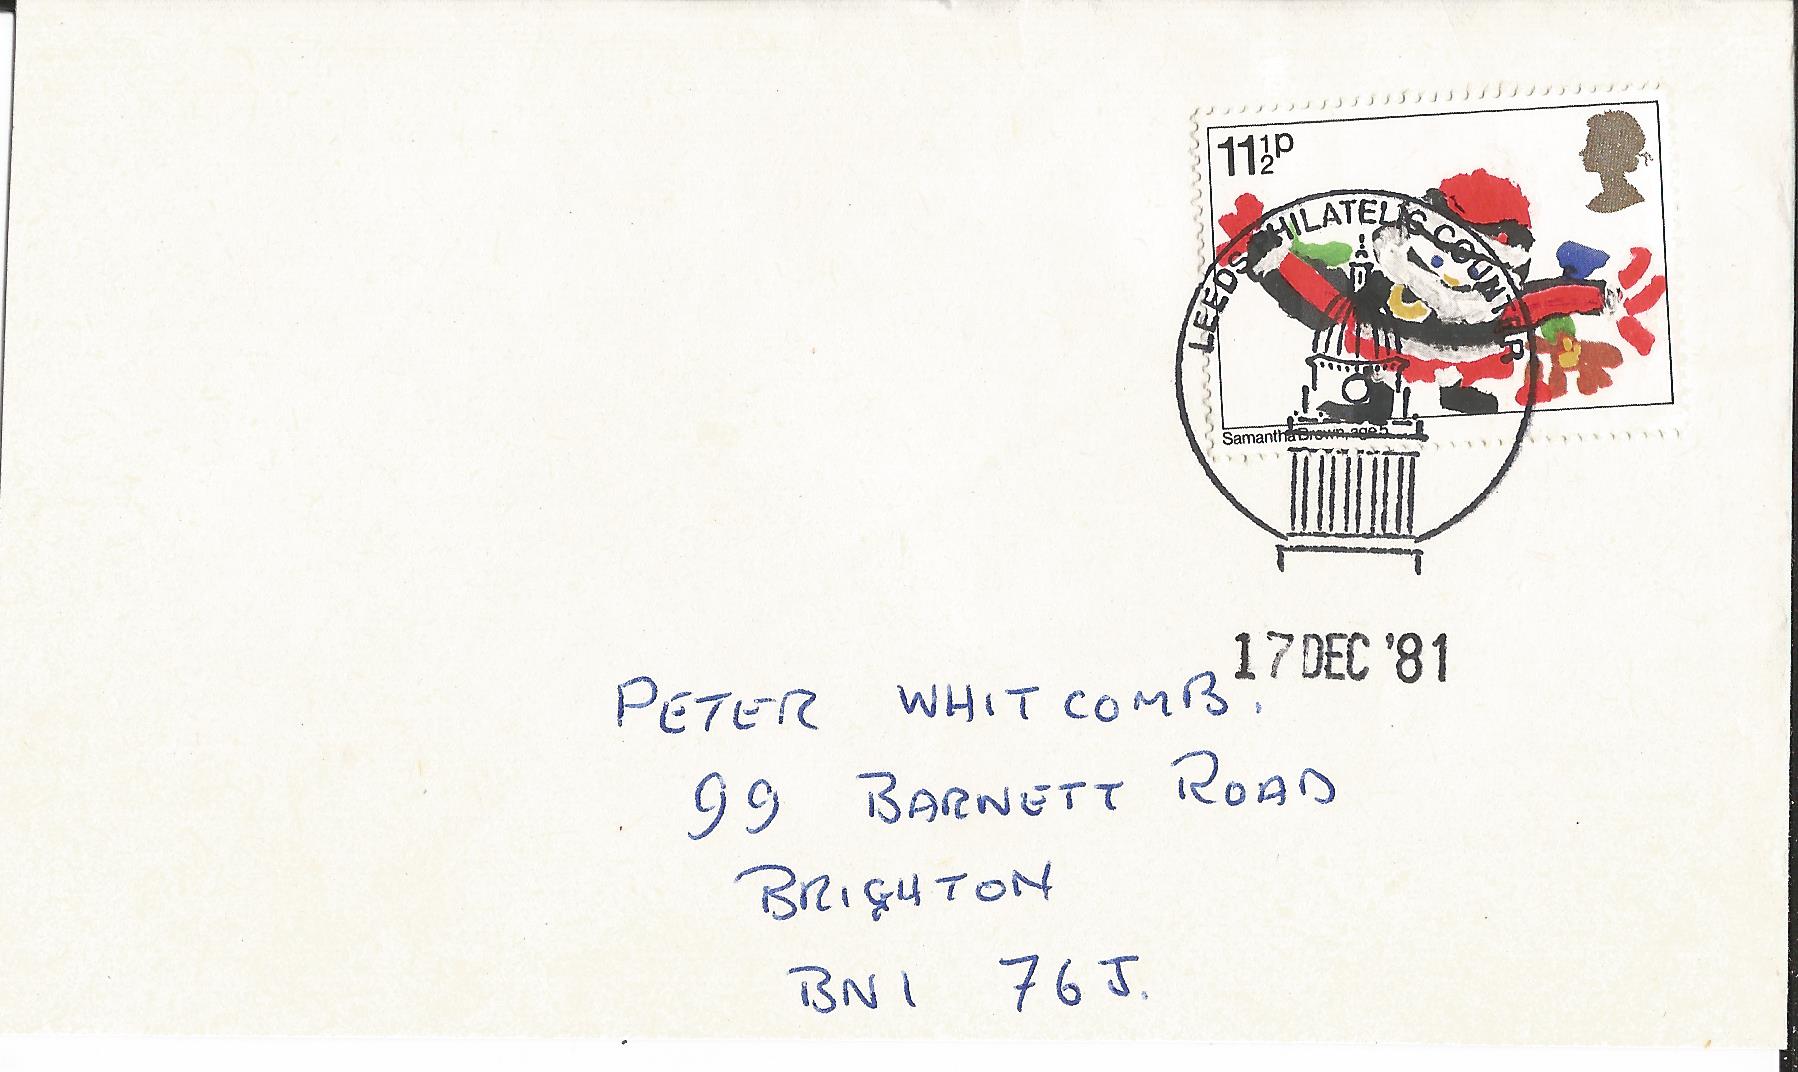 11½p
LEEDS PHILATELIC COUNTER
Samantha Brown, age 5
17 DEC '81
PETER WHITCOMB.
99 BARNETT ROAD
BRIGHTON
BN1 7GJ.